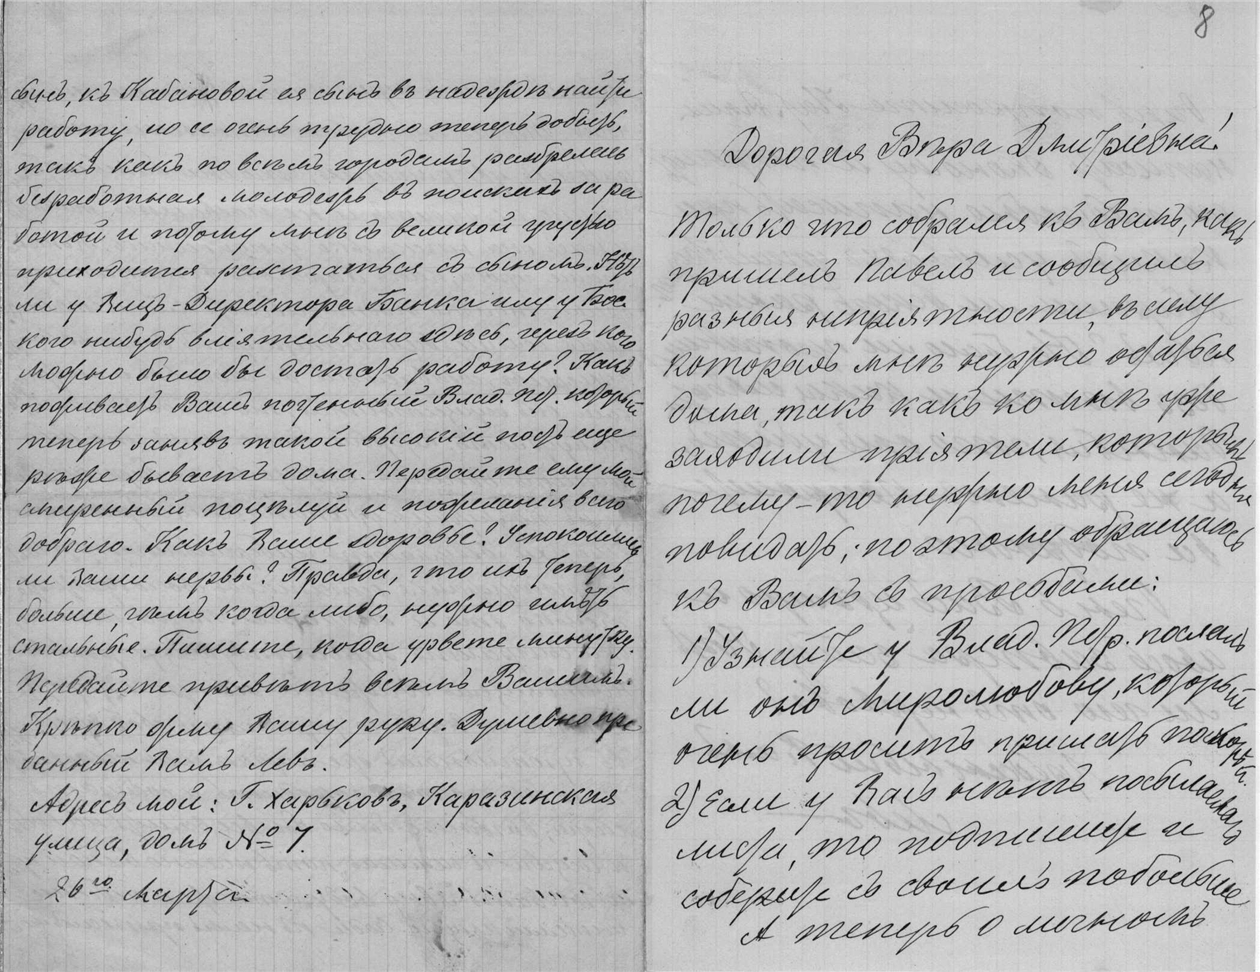 сынъ, къ Кабановой ея сынъ въ надеждѣ найти
работу, но ее очень трудно теперь добыть,
такъ какъ по всѣмъ городамъ разбрелась
безработная молодежь въ поискахъ за ра
ботой и потому мнѣ съ великой грустью
приходится разстаться съ сыномъ. Нѣтъ
ли у Вицъ-Директора Банка или у
кого нибудь вліятельнаго здѣсь, черезъ кого
можно было бы достать работу? Какъ
поживаетъ Вашъ почтенный Влад. Пет. который
теперь занявъ такой высокій постъ еще
рѣже бываетъ дома. Передайте ему мой
смиренный поцѣлуй и пожеланія всего
добраго. Какъ Ваше здоровье? Успокоились
ли Ваши нервы? Правда, что ихъ теперь,
больше, чѣмъ когда либо, нужно имѣть
стальные. Пишите, когда урвете минутку.
Передайте привѣтъ всѣмъ Вашимъ.
Крѣпко жму Вашу руку. Душевно пре
данный Вамъ Левъ.
Адресъ мой: Г. Харьковъ, Каразинская
улица, домъ № 7.
26го Марта.
8
Дорогая Вѣра Дмитріевна!
Только что собрался къ Вамъ, какъ
пришелъ Павелъ и сообщилъ
разныя непріятности, въ силу
которыхъ мнѣ нужно остаться
дома, такъ какъ ко мнѣ уже
заходили пріятели, которымъ
почему-то нужно меня сегодня
повидать; поэтому обращаюсь
къ Вамъ съ просьбами:
1) Узнайте у Влад. Петр. послалъ
ли онъ Миролюбову, который
очень проситъ прислать поскорѣй.
2) Если у Васъ нѣтъ подписного
листа, то подпишите и
соберите съ своихъ побольше
А теперь о личномъ